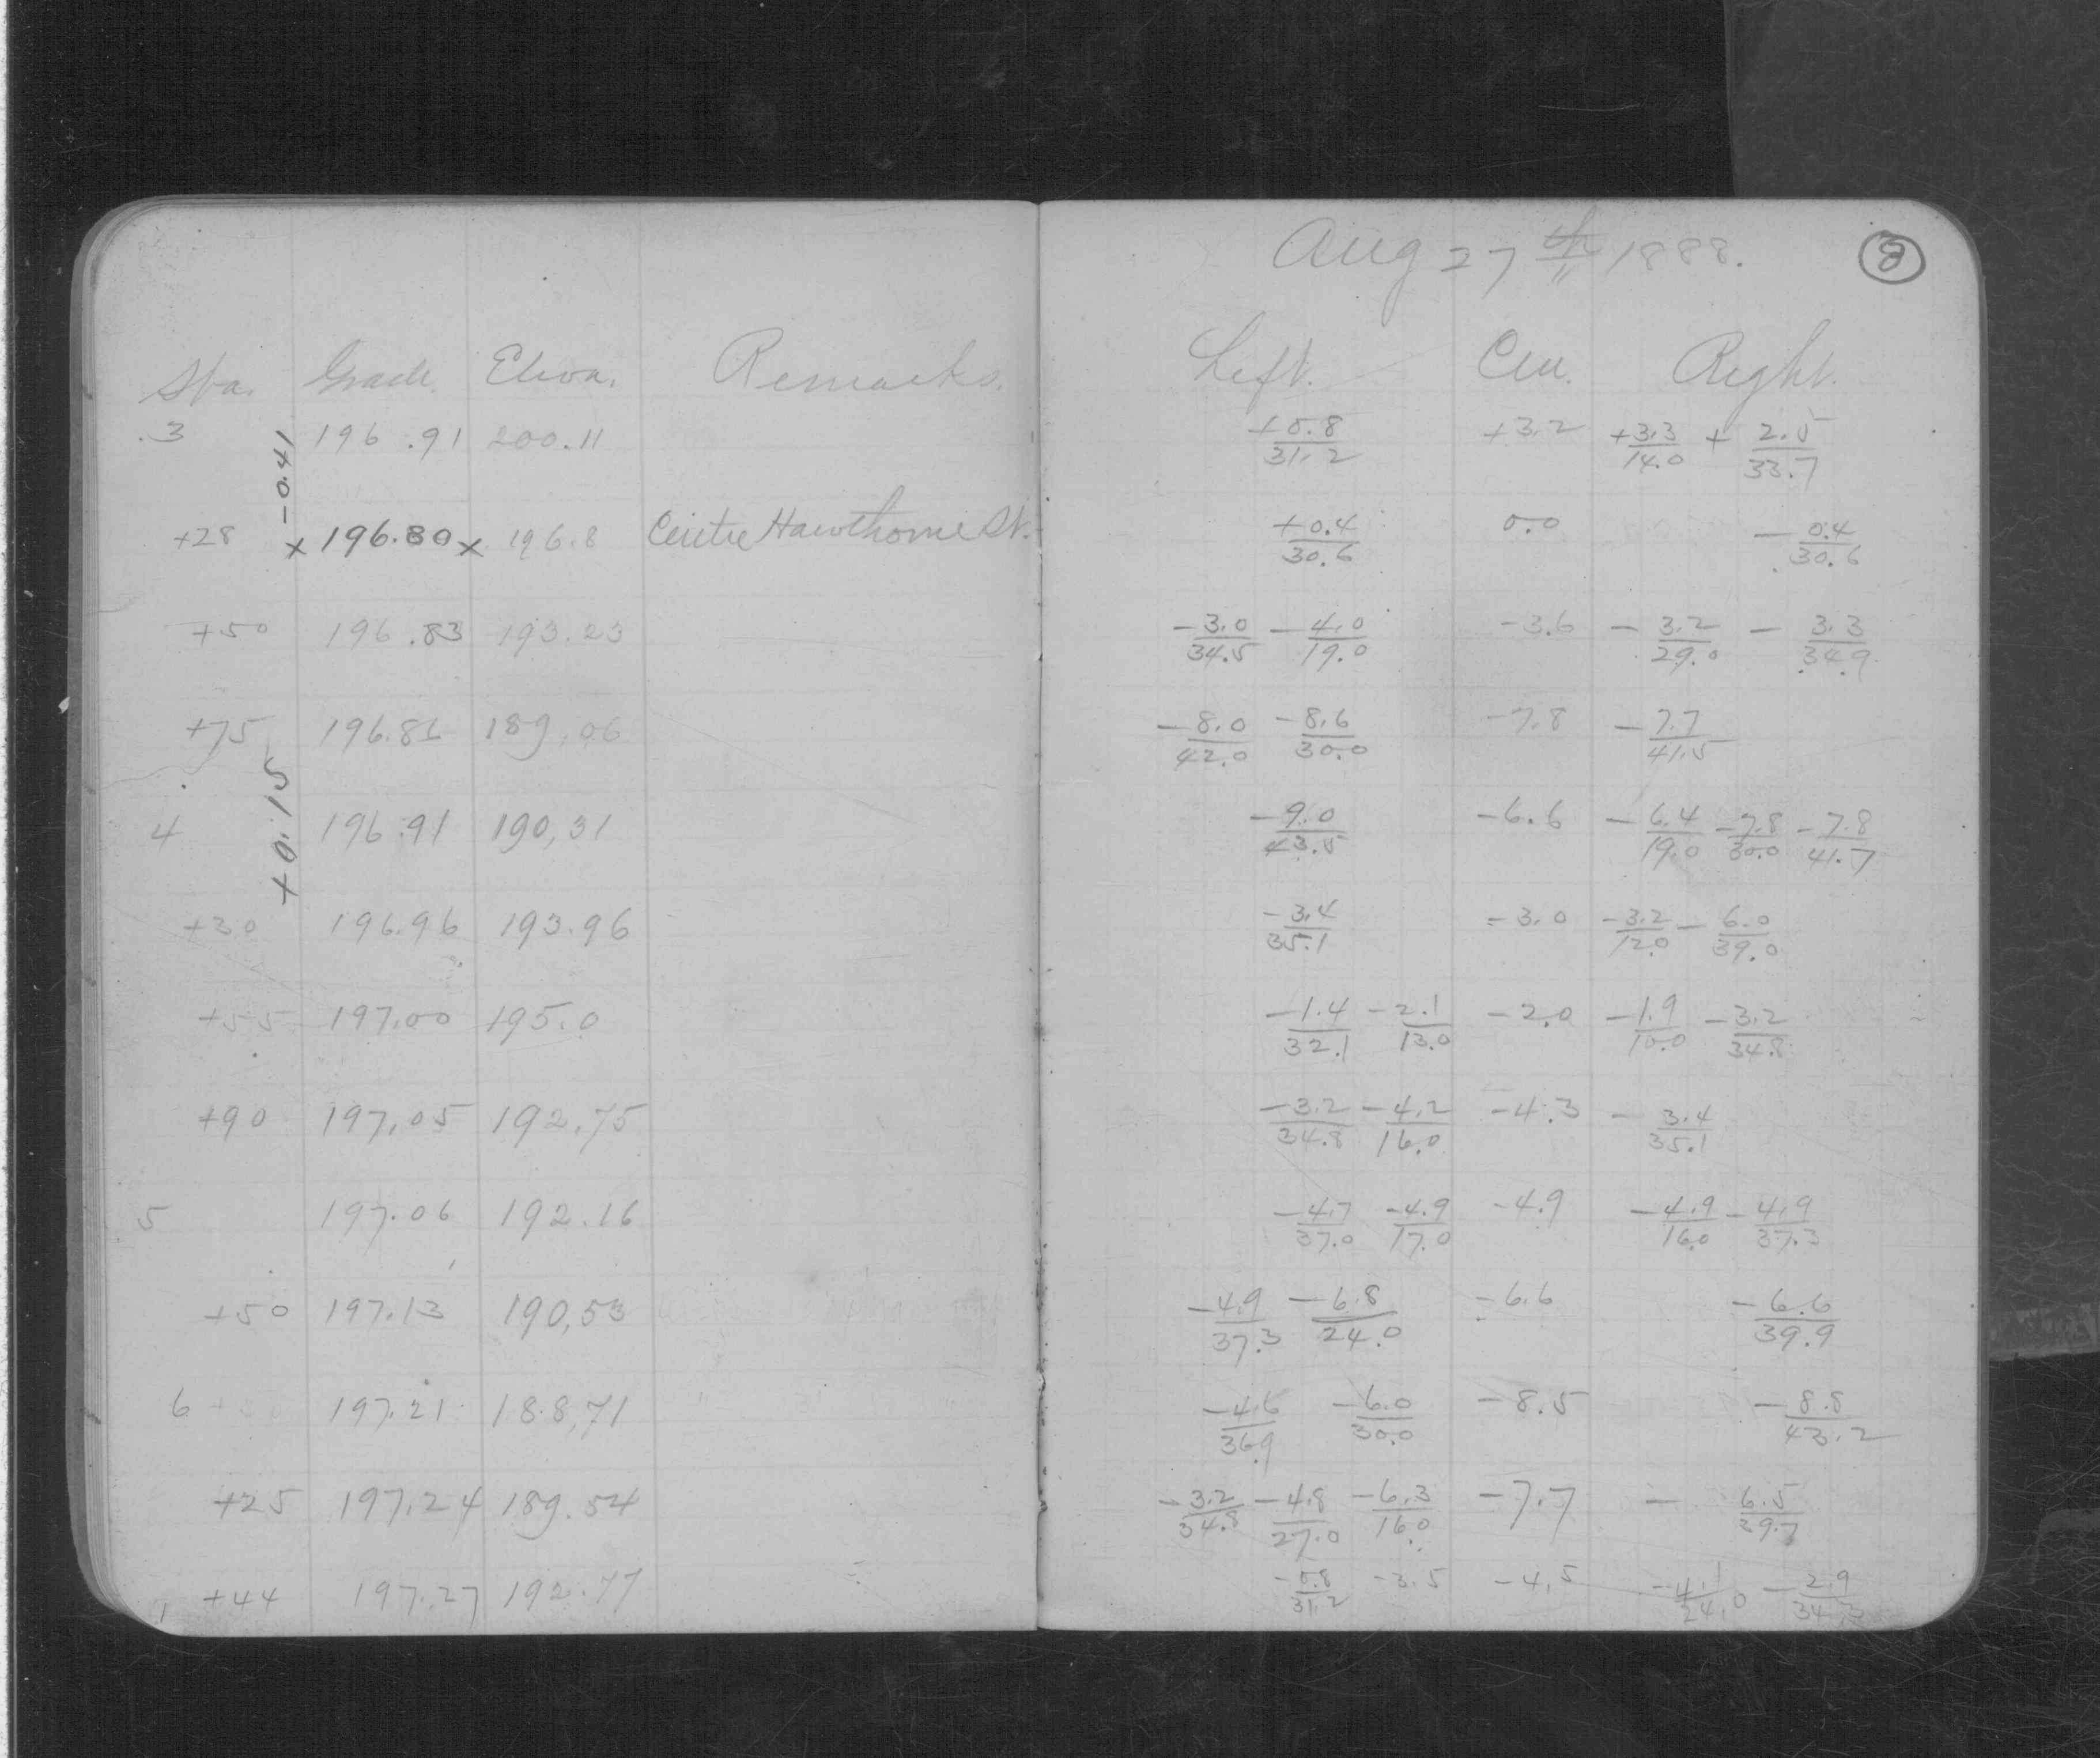 Aug 27th 1888. 8
Sta. Grade. Eleva. Remarks. Left. Cen. Right.
3 196.91 200.11 +0.8/31.2 +3.2 +3.3/14.0 + 2.5/33.7
-0.41
+28 x 196.80 x 196.8 Centre Hawthorne St. +0.4/30.6 0.0 - 0.4/30.6
+50 196.83 193.23 -3.0/34.5 -4.0/19.0 -3.6 - 3.2/29.0 - 3.3/34.9
+75 196.86 189.06 -8.0/42.0 -8.6/30.0 -7.8 -7.7/41.5
+0.15
4 196.91 190,31 -9.0/43.5 -6.6 -6.4/19.0 -7.8/30.0 -7.8/41.7
+30 196.96 193.96 -3.4/35.1 -3.0 -3.2/12.0 - 6.0/39.0
+55 197.00 195.0 -1.4/32.1 -2.1/13.0 -2.0 -1.9/10.0 -3.2/34.8
+90 197.05 192.75 -3.2/34.8 -4.2/16.0 -4.3 - 3.4/35.1
5 197.06 192.16 -4.7/37.0 -4.9/17.0 -4.9 -4.9/16.0 -4.9/37.3
+50 197.13 190,53 -4.9/37.3 -6.8/24.0 -6.6 -6.6/39.9
6 197.21 188,71 -4.6/36.9 -6.0/30.0 -8.5 -8.8/43.2
+25 197.24 189.54 -3.2/34.8 -4.8/27.0 -6.3/16.0 -7.7 - 6.5/39.7
+44 197.27 192.77 -0.8/31.2 -3.5 -4.5 -4.1/24.0 -2.9/34.3